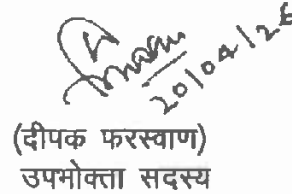 20/04/26
(दीपक फरस्वाण)
उपभोक्ता सदस्य